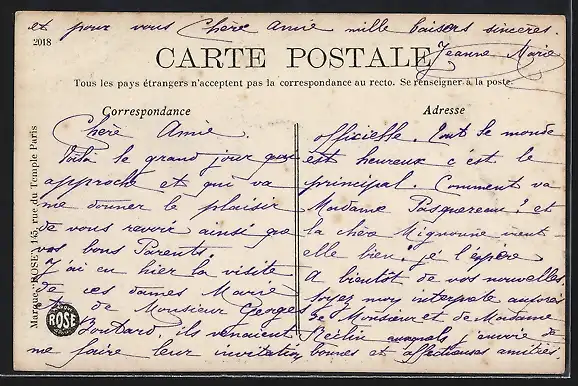 et pour vous Chère Amie mille baisers sincères.
Jeanne Marie
2018
CARTE POSTALE
Tous les pays étrangers n'acceptent pas la correspondance au recto. Se renseigner à la poste.
Correspondance
Chère Amie.
Voilà le grand jour qui
approche et qui va
me donner le plaisir
de vous revoir ainsi que
vos bons Parents.
J'ai eu hier la visite
de ces dames Marie
et de Monsieur Georges
Boutard, ils venaient
me faire leur invitation
Adresse
officielle. Tout le monde
est heureux c'est le
principal. Comment va
Madame Pasquereau? et
la chère Mignonne vient
elle bien? je l'espère
A bientôt de vos nouvelles.
Soyez moy interprete auprès
de Monsieur et de Madame
auxquels j'envoie de
bonnes et affectueuses amitiés
Marque ROSE, 145, rue du Temple Paris
ROSE